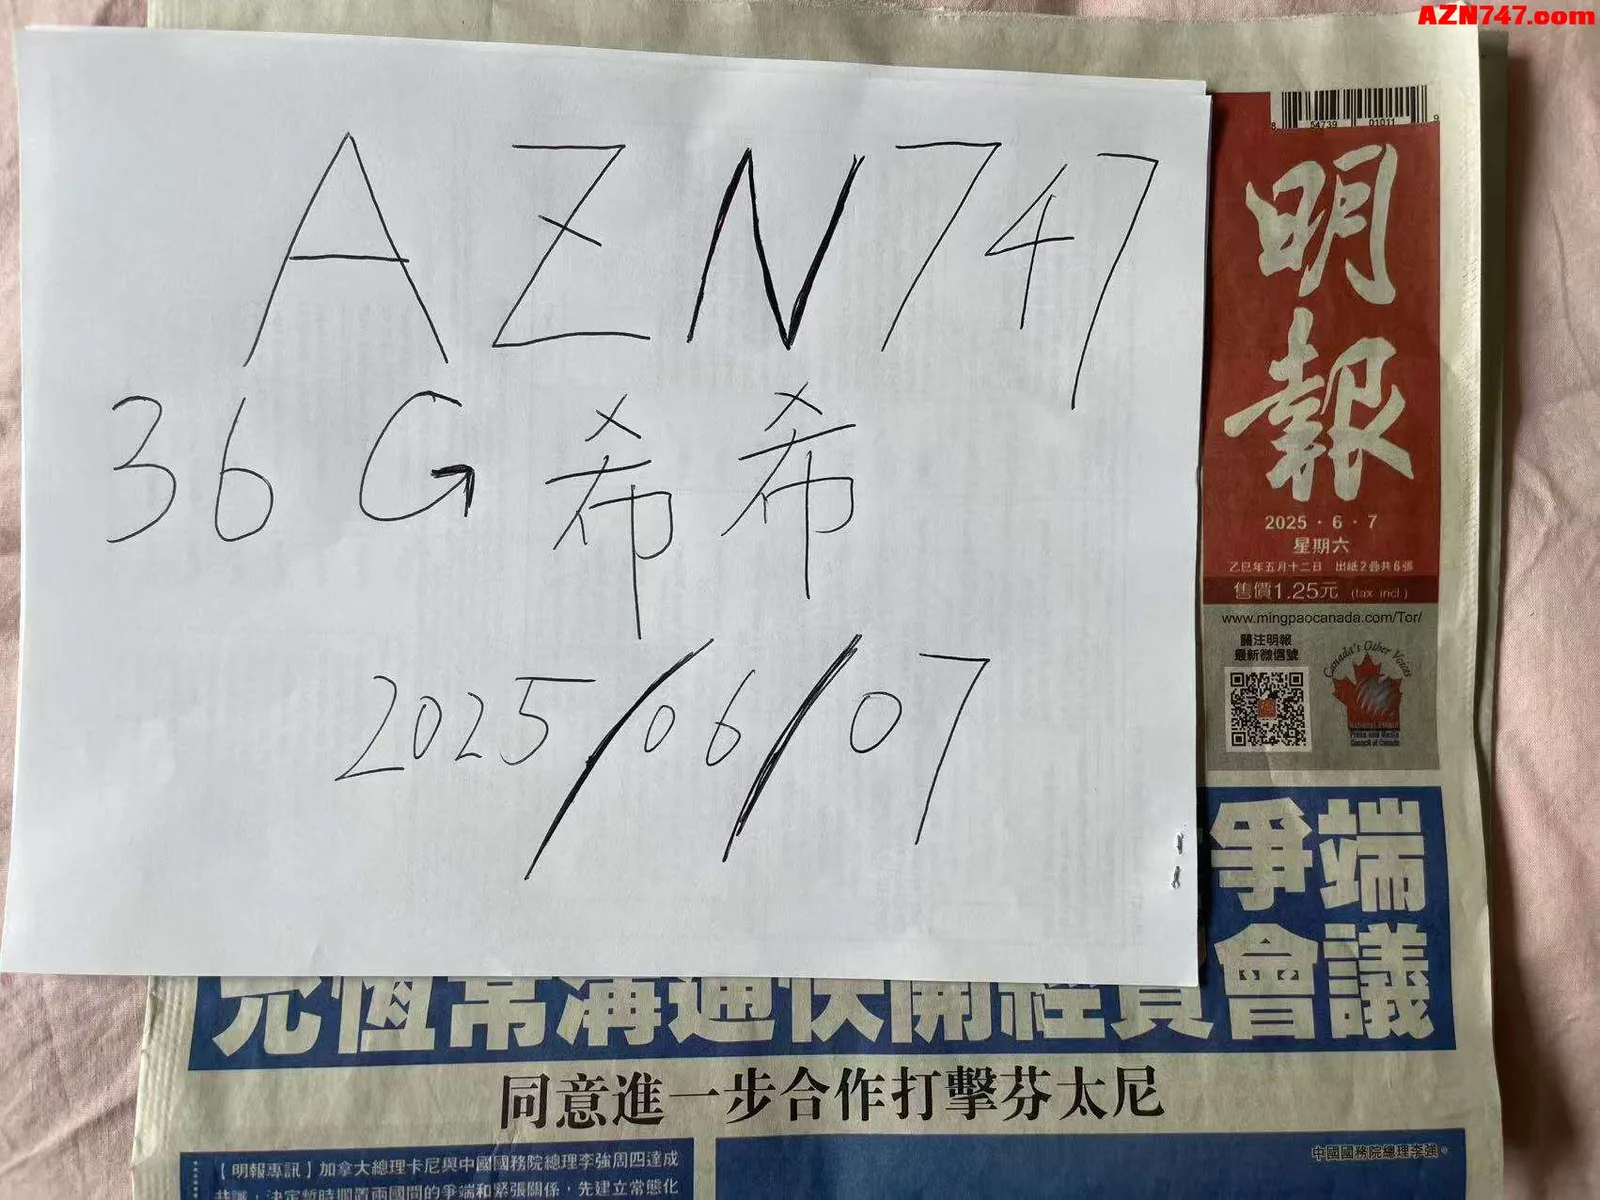 AZN747.com
AZN747
36G希希
2025/06/07
8 54739 01011 9
明報
2025・6・7
星期六
乙巳年五月十二日 出紙2疊共6張
售價1.25元 (tax incl.)
www.mingpaocanada.com/Tor/
關注明報
最新微信號
Canada's Other Voices
National Ethnic
Press and Media
Council of Canada
爭端
恆常溝通快開經貿會議
同意進一步合作打擊芬太尼
中國國務院總理李強。
【明報專訊】加拿大總理卡尼與中國國務院總理李強周四達成
共識，決定暫時擱置兩國間的爭端和緊張關係，先建立常態化